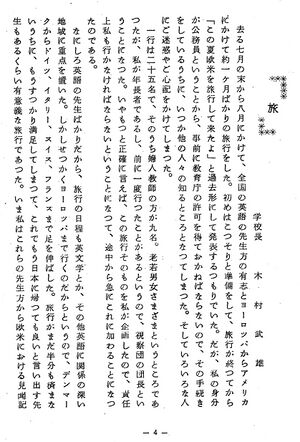 旅
学校長　木村武雄
去る七月の末から八月にかけて、全国の英語の先生方の有志とヨーロッパからアメリカ
にかけて約一ケ月ばかりの旅行をした。初めはこっそりと準備をして、旅行が終ってから
「この夏欧米を旅行して来たよ」と過去形にして発表するつもりでいた。だが、私の身分
が公務員ということから、事前に教育庁の許可を得ておかねばならないので、その手続き
をしているうちに、いつか他の人々の知るところとなってしまった。そしていろいろな人
にご迷惑やご心配をかけてしまった。
一行は二十五名で、そのうち婦人教師の方が九名。老若男女さまざまというところであ
ったが、私が年長者であるし、前に一度行ったことがあるというので、視察団の団長とい
うことになった。いやもっと正確に言えば、この旅行そのものを私が企画したので、責任
上私も行かなければならないということになって、途中から急にこれに加わることになっ
たのである。
なにしろ英語の先生ばかりだから、旅行の日程も英文学とか、その他英語に関係の深い
地域に重点を置いた。しかしせっかくヨーロッパまで行くのだからというので、デンマー
クからドイツ、イタリー、スイス、フランスまで足を伸ばした。旅行がまだ半分も済まな
いうちに、もうすっかり満足してしまって、これでもう日本に帰っても良いと言い出す先
生もあるくらい有意義な旅行であった。いま私はこれらの先生方から欧米における見聞記
— 4 —